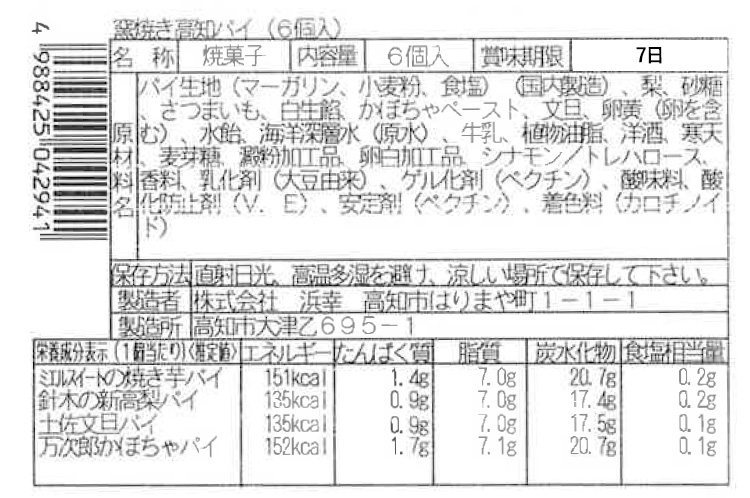 窯焼き高知パイ（6個入）
名 称 焼菓子 内容量 6個入 賞味期限 7日
原材料名
パイ生地（マーガリン、小麦粉、食塩）（国内製造）、梨、砂糖
、さつまいも、白生餡、かぼちゃペースト、文旦、卵黄（卵を含
む）、水飴、海洋深層水（原水）、牛乳、植物油脂、洋酒、寒天
、麦芽糖、澱粉加工品、卵白加工品、シナモン／トレハロース、
香料、乳化剤（大豆由来）、ゲル化剤（ペクチン）、酸味料、酸
化防止剤（V．E）、安定剤（ペクチン）、着色料（カロチノイ
ド）
保存方法 直射日光、高温多湿を避け、涼しい場所で保存して下さい。
製造者 株式会社 浜幸 高知市はりまや町1－1－1
製造所 高知市大津乙695－1
栄養成分表示（1個当たり）〈推定値〉 エネルギー たんぱく質 脂質 炭水化物 食塩相当量
ミエルスイートの焼き芋パイ 151kcal 1.4g 7.0g 20.7g 0.2g
針木の新高梨パイ 135kcal 0.9g 7.0g 17.4g 0.2g
土佐文旦パイ 135kcal 0.9g 7.0g 17.5g 0.1g
万次郎かぼちゃパイ 152kcal 1.7g 7.1g 20.7g 0.1g
4 988425 042941